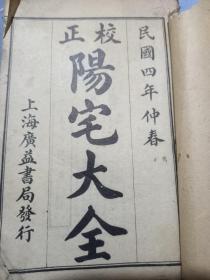 民國四年仲春
校正
陽宅大全
上海廣益書局發行